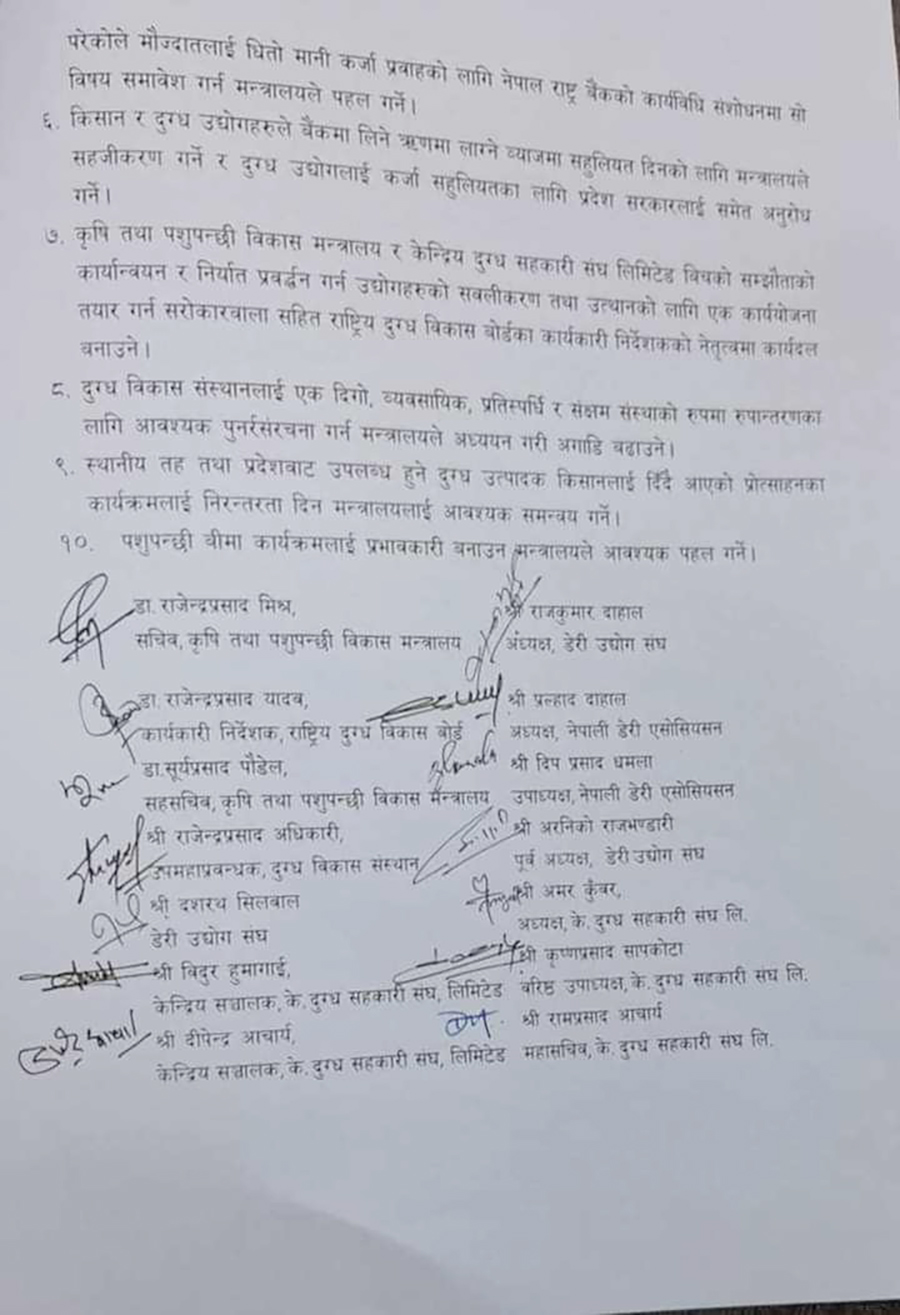 परेकोले मौज्दातलाई धितो मानी कर्जा प्रवाहको लागि नेपाल राष्ट्र बैंकको कार्यविधि संशोधनमा सो
विषय समावेश गर्न मन्त्रालयले पहल गर्ने।
६. किसान र दुग्ध उद्योगहरुले बैंकमा लिने ऋणमा लाग्ने ब्याजमा सहुलियत दिनको लागि मन्त्रालयले
सहजीकरण गर्ने र दुग्ध उद्योगलाई कर्जा सहुलियतका लागि प्रदेश सरकारलाई समेत अनुरोध
गर्ने।
७. कृषि तथा पशुपन्छी विकास मन्त्रालय र केन्द्रिय दुग्ध सहकारी संघ लिमिटेड बिचको सम्झौताको
कार्यान्वयन र निर्यात प्रवर्द्धन गर्न उद्योगहरुको सवलीकरण तथा उत्थानको लागि एक कार्ययोजना
तयार गर्न सरोकारवाला सहित राष्ट्रिय दुग्ध विकास बोर्डका कार्यकारी निर्देशकको नेतृत्वमा कार्यदल
बनाउने।
८. दुग्ध विकास संस्थानलाई एक दिगो, व्यवसायिक, प्रतिस्पर्धि र सक्षम संस्थाको रुपमा रुपान्तरणका
लागि आवश्यक पुनर्रसंरचना गर्न मन्त्रालयले अध्ययन गरी अगाडि बढाउने।
९. स्थानीय तह तथा प्रदेशबाट उपलब्ध हुने दुग्ध उत्पादक किसानलाई दिँदै आएको प्रोत्साहनका
कार्यक्रमलाई निरन्तरता दिन मन्त्रालयलाई आवश्यक समन्वय गर्ने।
१०. पशुपन्छी बीमा कार्यक्रमलाई प्रभावकारी बनाउन मन्त्रालयले आवश्यक पहल गर्ने।
डा. राजेन्द्रप्रसाद मिश्र, श्री राजकुमार दाहाल
सचिव, कृषि तथा पशुपन्छी विकास मन्त्रालय अध्यक्ष, डेरी उद्योग संघ
डा. राजेन्द्रप्रसाद यादव, श्री प्रल्हाद दाहाल
कार्यकारी निर्देशक, राष्ट्रिय दुग्ध विकास बोर्ड अध्यक्ष, नेपाली डेरी एसोसियसन
डा.सूर्यप्रसाद पौडेल, श्री दिप प्रसाद धमला
सहसचिव, कृषि तथा पशुपन्छी विकास मन्त्रालय उपाध्यक्ष, नेपाली डेरी एसोसियसन
श्री राजेन्द्रप्रसाद अधिकारी, श्री अरनिको राजभण्डारी
उपमहाप्रवन्धक, दुग्ध विकास संस्थान पूर्व अध्यक्ष, डेरी उद्योग संघ
श्री दशरथ सिलवाल श्री अमर कुँवर,
डेरी उद्योग संघ अध्यक्ष, के. दुग्ध सहकारी संघ लि.
श्री बिदुर हुमागाई, श्री कृष्णप्रसाद सापकोटा
केन्द्रिय सञ्चालक, के. दुग्ध सहकारी संघ, लिमिटेड बरिष्ठ उपाध्यक्ष, के. दुग्ध सहकारी संघ लि.
श्री दीपेन्द्र आचार्य, श्री रामप्रसाद आचार्य
केन्द्रिय सञ्चालक, के. दुग्ध सहकारी संघ, लिमिटेड महासचिव, के. दुग्ध सहकारी संघ लि.